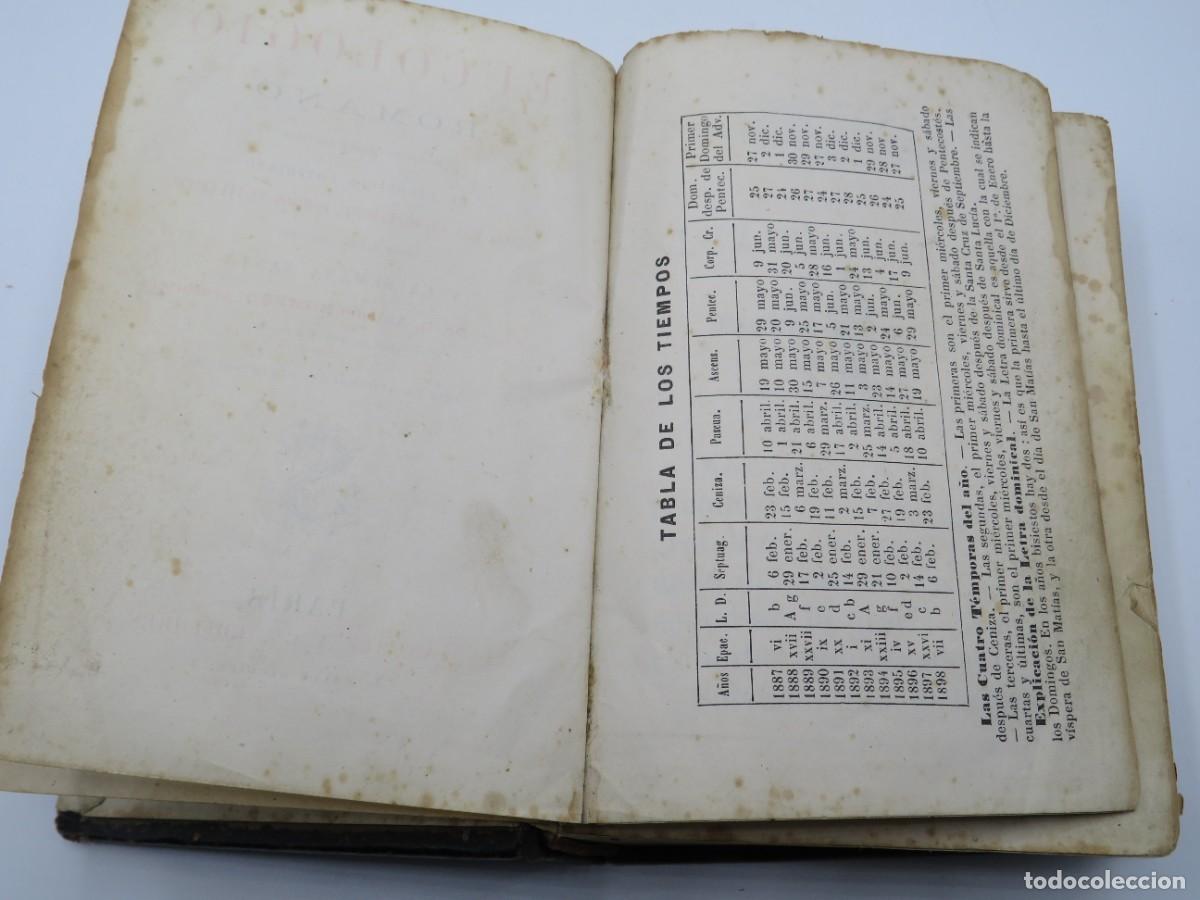 TABLA DE LOS TIEMPOS
Años Epac. L. D. Septuag. Ceniza. Pascua. Ascens. Pentec. Corp. Cr. Dom. desp. de Pentec. Primer Domingo del Adv.
1887 vi b 6 feb. 23 feb. 10 abril. 19 mayo 29 mayo 9 jun. 25 27 nov.
1888 xvii A g 29 ener. 15 feb. 1 abril. 10 mayo 20 mayo 31 mayo 27 2 dic.
1889 xxvii f 17 feb. 6 marz. 21 abril. 30 mayo 9 jun. 20 jun. 24 1 dic.
1890 ix e 2 feb. 19 feb. 6 abril. 15 mayo 25 mayo 5 jun. 26 30 nov.
1891 xx d 25 ener. 11 feb. 29 marz. 7 mayo 17 mayo 28 mayo 27 29 nov.
1892 i c b 14 feb. 2 marz. 17 abril. 26 mayo 5 jun. 16 jun. 24 27 nov.
1893 xi A 29 ener. 15 feb. 2 abril. 11 mayo 21 mayo 1 jun. 27 3 dic.
1894 xxiii g 21 ener. 7 feb. 25 marz. 3 mayo 13 mayo 24 mayo 28 2 dic.
1895 iv f 10 feb. 27 feb. 14 abril. 23 mayo 2 jun. 13 jun. 25 1 dic.
1896 xv e d 2 feb. 19 feb. 5 abril. 14 mayo 24 mayo 4 jun. 26 29 nov.
1897 xxvi c 14 feb. 3 marz. 18 abril. 27 mayo 6 jun. 17 jun. 24 28 nov.
1898 vii b 6 feb. 23 feb. 10 abril. 19 mayo 29 mayo 9 jun. 25 27 nov.
Las Cuatro Témporas del año. — Las primeras son el primer miércoles, viernes y sábado
después de Ceniza. — Las segundas, el primer miércoles, viernes y sábado después de Pentecostés.
— Las terceras, el primer miércoles, viernes y sábado después de la Santa Cruz de Septiembre. — Las
cuartas y últimas, son el primer miércoles, viernes y sábado después de Santa Lucía.
Explicación de la Letra dominical. — La Letra dominical es aquella con la cual se indican
los Domingos. En los años bisiestos hay dos : así es que la primera sirve desde el 1º. de Enero hásta la
víspera de San Matías, y la otra desde el día de San Matías hasta el último día de Diciembre.
todocoleccion